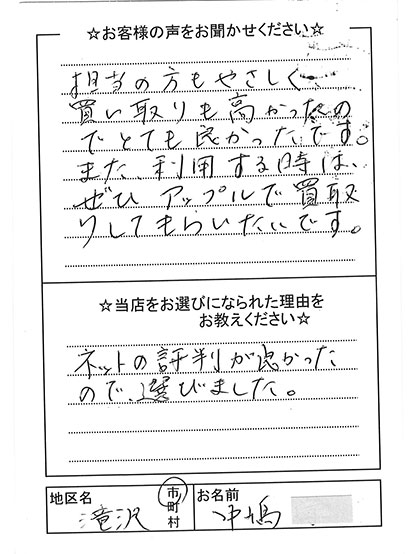 ☆お客様の声をお聞かせください☆
担当の方もやさしく
買い取りも高かったの
でとても良かったです。
また、利用する時は、
ぜひアップルで買取
りしてもらいたいです。
☆当店をお選びになられた理由を
お教えください☆
ネットの評判が良かった
ので、選びました。
地区名 滝沢 市町村 お名前 沖嶋